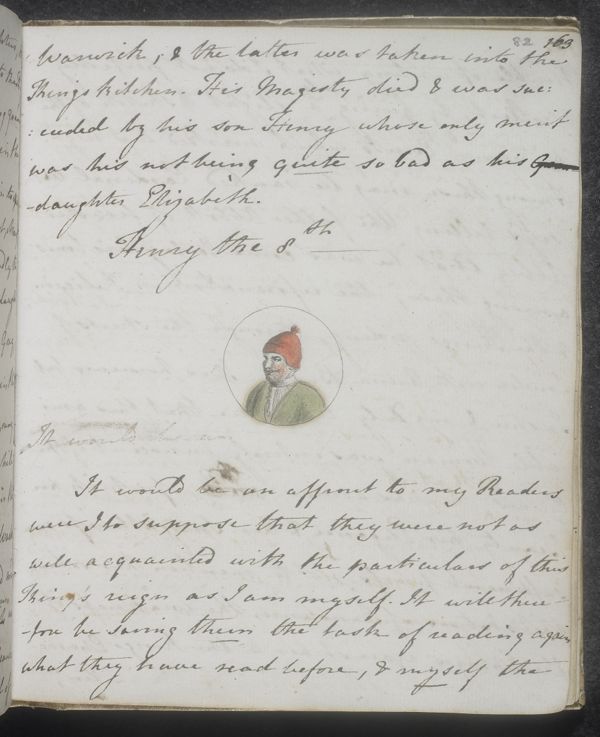 82 163
Warwick, & the latter was taken into the
Kings Kitchen. His Magesty died & was suc:
:ceeded by his son Henry whose only merit
was his not being quite so bad as his
-daughter Elizabeth.
Henry the 8th
It would be an affront to my Readers
were I to suppose that they were not as
well acquainted with the particulars of this
King's reign as I am myself. It will there-
-fore be saving them the task of reading again
what they have read before, & myself the